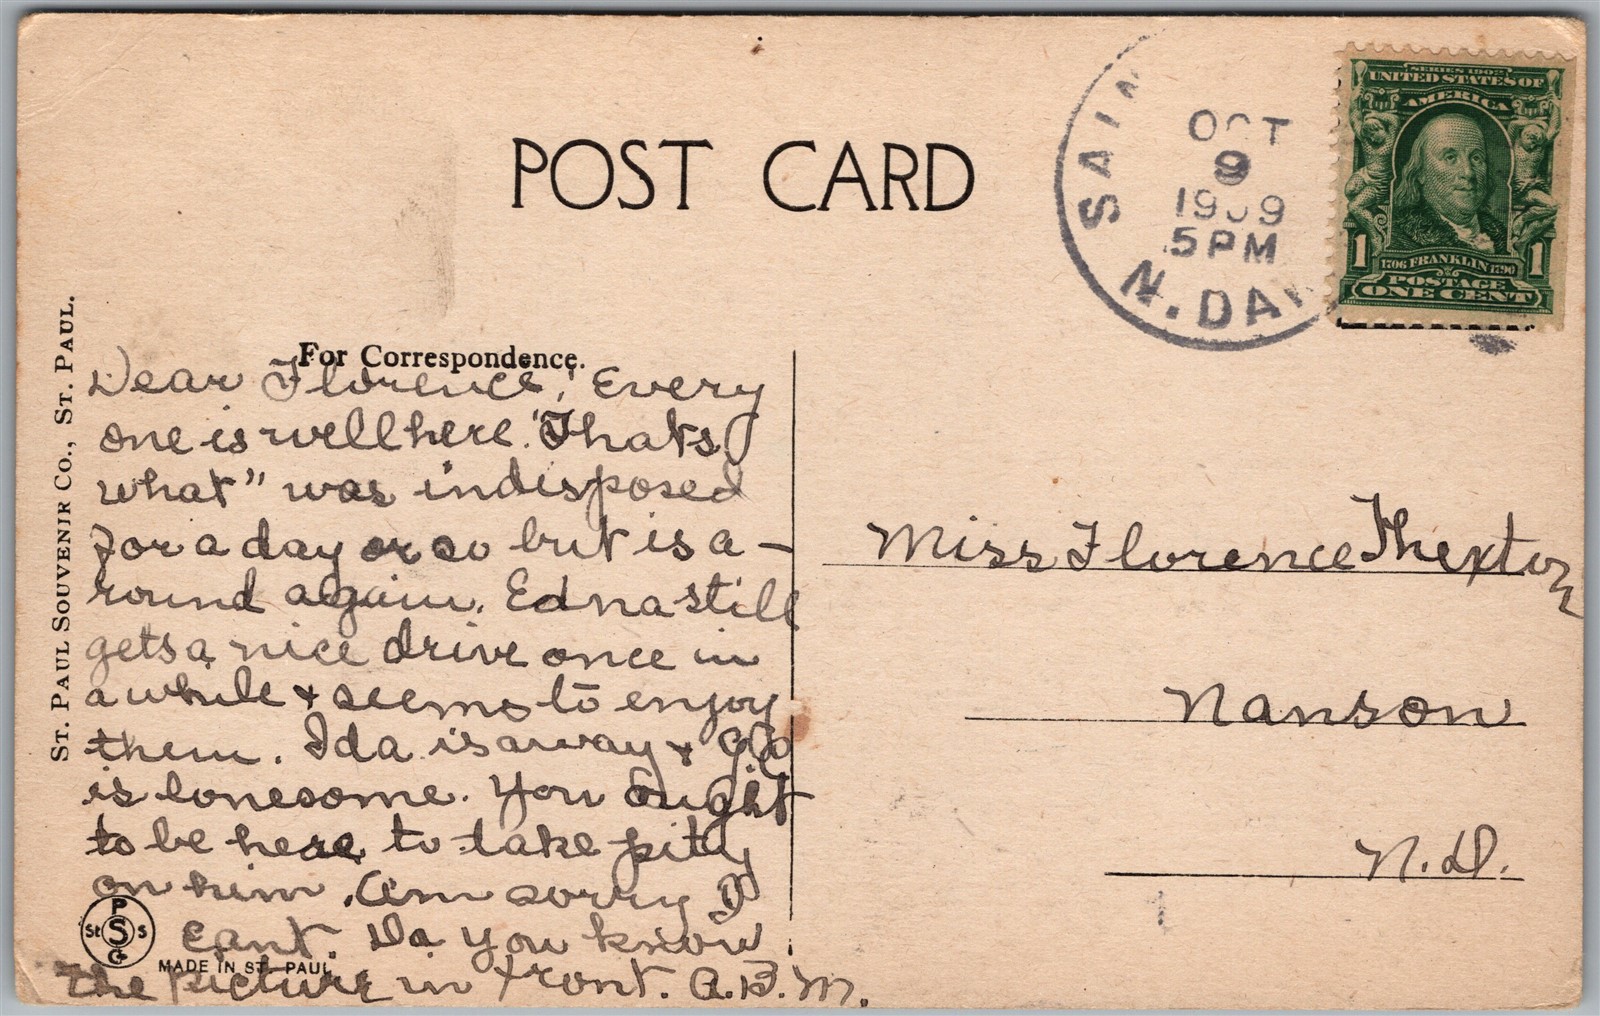 POST CARD
SAIN
N. DAK
OCT
9
1909
5 PM
SERIES 1902
UNITED STATES OF
AMERICA
1 1706 FRANKLIN 1790 1
POSTAGE
ONE CENT
ST. PAUL SOUVENIR CO., ST. PAUL.
For Correspondence.
Dear Florence; Every
one is well here. "Thats
what" was indisposed
for a day or so but is a-
round again. Edna still
gets a nice drive once in
a while + seems to enjoy
them. Ida is away +
is lonesome. You ought
to be here to take pity
on him. Am sorry I
cant. Do you know
the picture in front. A.B.M.
P
St S S
C
MADE IN ST. PAUL
Miss Florence Thexton
Nanson
N.D.